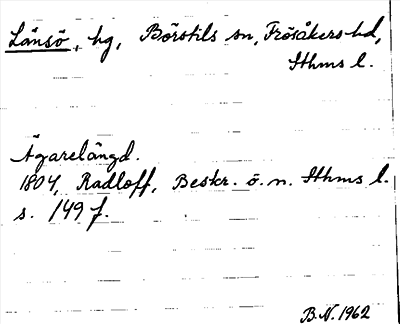 Länsö, hg, Börstils sn, Frösåkers hd,
Sthms l.
Ägarelängd.
1804, Radloff, Beskr. ö. n. Sthms l.
s. 149 f.
B.N. 1962